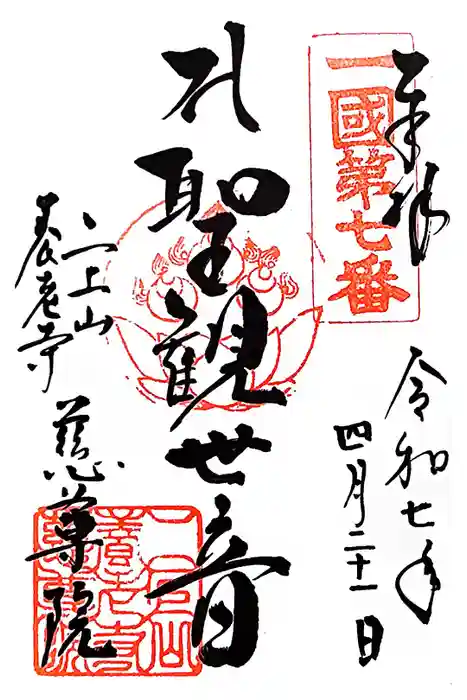 奉拝
一國第七番
令和七年
四月二十一日
聖観世音
上山
養老寺
慈尊院